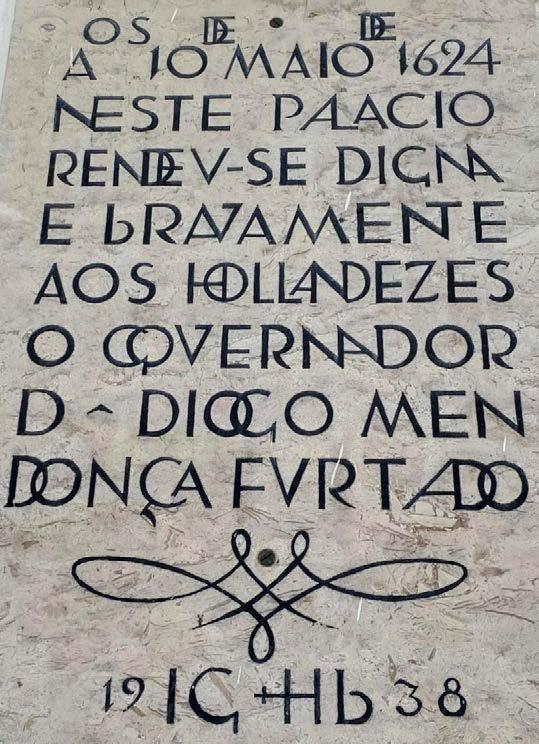 AOS 10 DE MAIO DE 1624
NESTE PALACIO
RENDEV-SE DIGNA
E bRAVAMENTE
AOS HOLLANDEZES
O GOVERNADOR
D ^ DIOGO MEN
DONÇA FVRTADO
19 IG+Hb 38